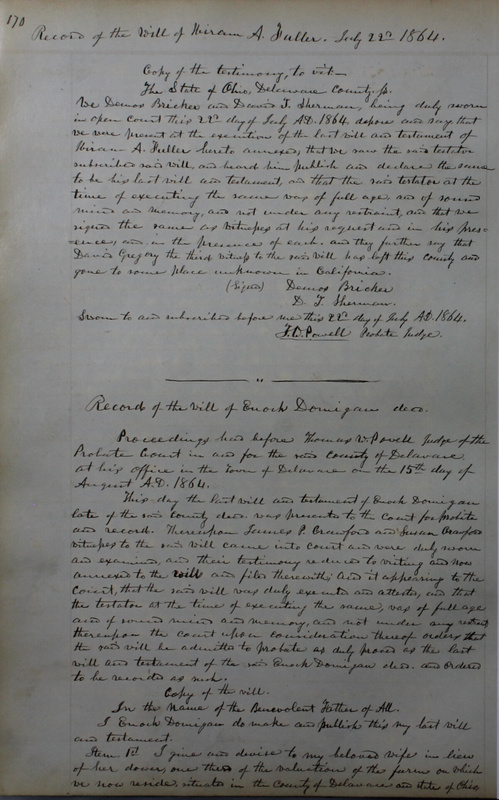 170
Record of the Will of Hiram A. Fuller. July 22d 1864.
Copy of the testimony, to wit—
The State of Ohio, Delaware County, ss.
We Demos Bricker and David T. Sherman, being duly sworn
in open Court this 22d day of July A.D. 1864. depose and say, that
we were present at the execution of the last will and testament of
Hiram A. Fuller hereto annexed; that we saw the said testator
subscribe said will, and heard him publish and declare the same
to be his last will and testament, and that the said testator at the
time of executing the same was of full age, and of sound
mind and memory, and not under any restraint, and that we
signed the same as witnesses at his request and in his pres-
ence, and in the presence of each. and they further say that
David Gregory the third witness to the said will has left this county and
gone to some place unknown in California.
(Signed) Demos Bricker
D. T. Sherman.
Sworn to and subscribed before me this 22d day of July A.D. 1864.
T. W. Powell Probate Judge.
Record of the will of Enoch Domigan decd.
Proceedings had before Thomas W. Powell Judge of the
Probate Court in and for the said County of Delaware
at his office in the Town of Delaware on the 15th day of
August A.D. 1864.
This day the last will and testament of Enoch Domigan
late of the said county decd. was presented to the Court for probate
and record. Thereupon James P. Crawford and Susan Crawford
witnesses to the said will came into Court and were duly sworn
and examined, and their testimony reduced to writing and now
annexed to the will and filed therewith; And it appearing to the
Court, that the said will was duly executed and attested, and that
the testator at the time of executing the same, was of full age
and of sound mind and memory, and not under any restraint
thereupon the court upon consideration thereof orders that
the said will be admitted to probate as duly proved as the last
will and testament of the said Enoch Domigan decd. and ordered
to be recorded as such.
Copy of the will.
In the name of the Benevolent Father of All.
I Enoch Domigan do make and publish this my last will
and testament.
Item 1st I give and devise to my beloved wife in lieu
of her dower, one third of the valuation of the farm on which
we now reside, situated in the County of Delaware and state of Ohio